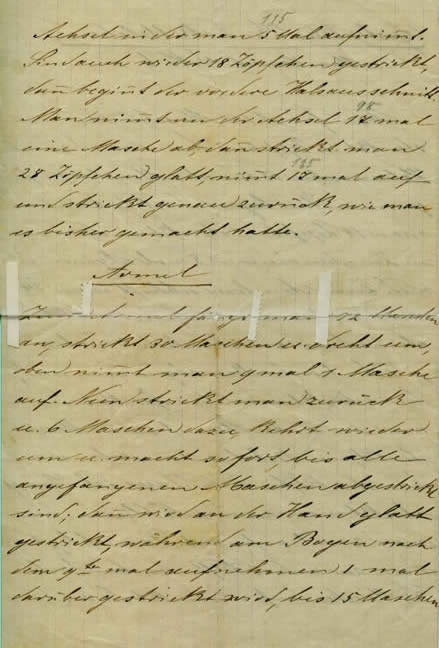 115
Achsel wieder man 5 Mal aufnim̅t.
Sind auch wieder 18 Zöpfchen gestrickt,
dan̅ begin̅t der vordere Halsausschnitt.
98
Man nim̅t an der Achsel 17 mal
eine Masche ab, dan̅ strickt man
115
28 Zöpfchen glatt, nim̅t 17 mal auf
und strickt genau zurück, wie man
es bisher gemacht hatte.
Ärmel
fängt man 72 Maschen
an, strickt 30 Maschen u. dreht um,
oben nim̅t man 9 mal 1 Masche
auf. Nun strickt man zurück
u. 6 Maschen dazu, kehrt wieder
um u. macht so fort, bis alle
angefangenen Maschen abgestrickt
sind; dan̅ wird an der Hand glatt
gestrickt, während am Bogen nach
dem 9ten mal aufnehmen 1 mal
darüber gestrickt wird, bis 15 Maschen